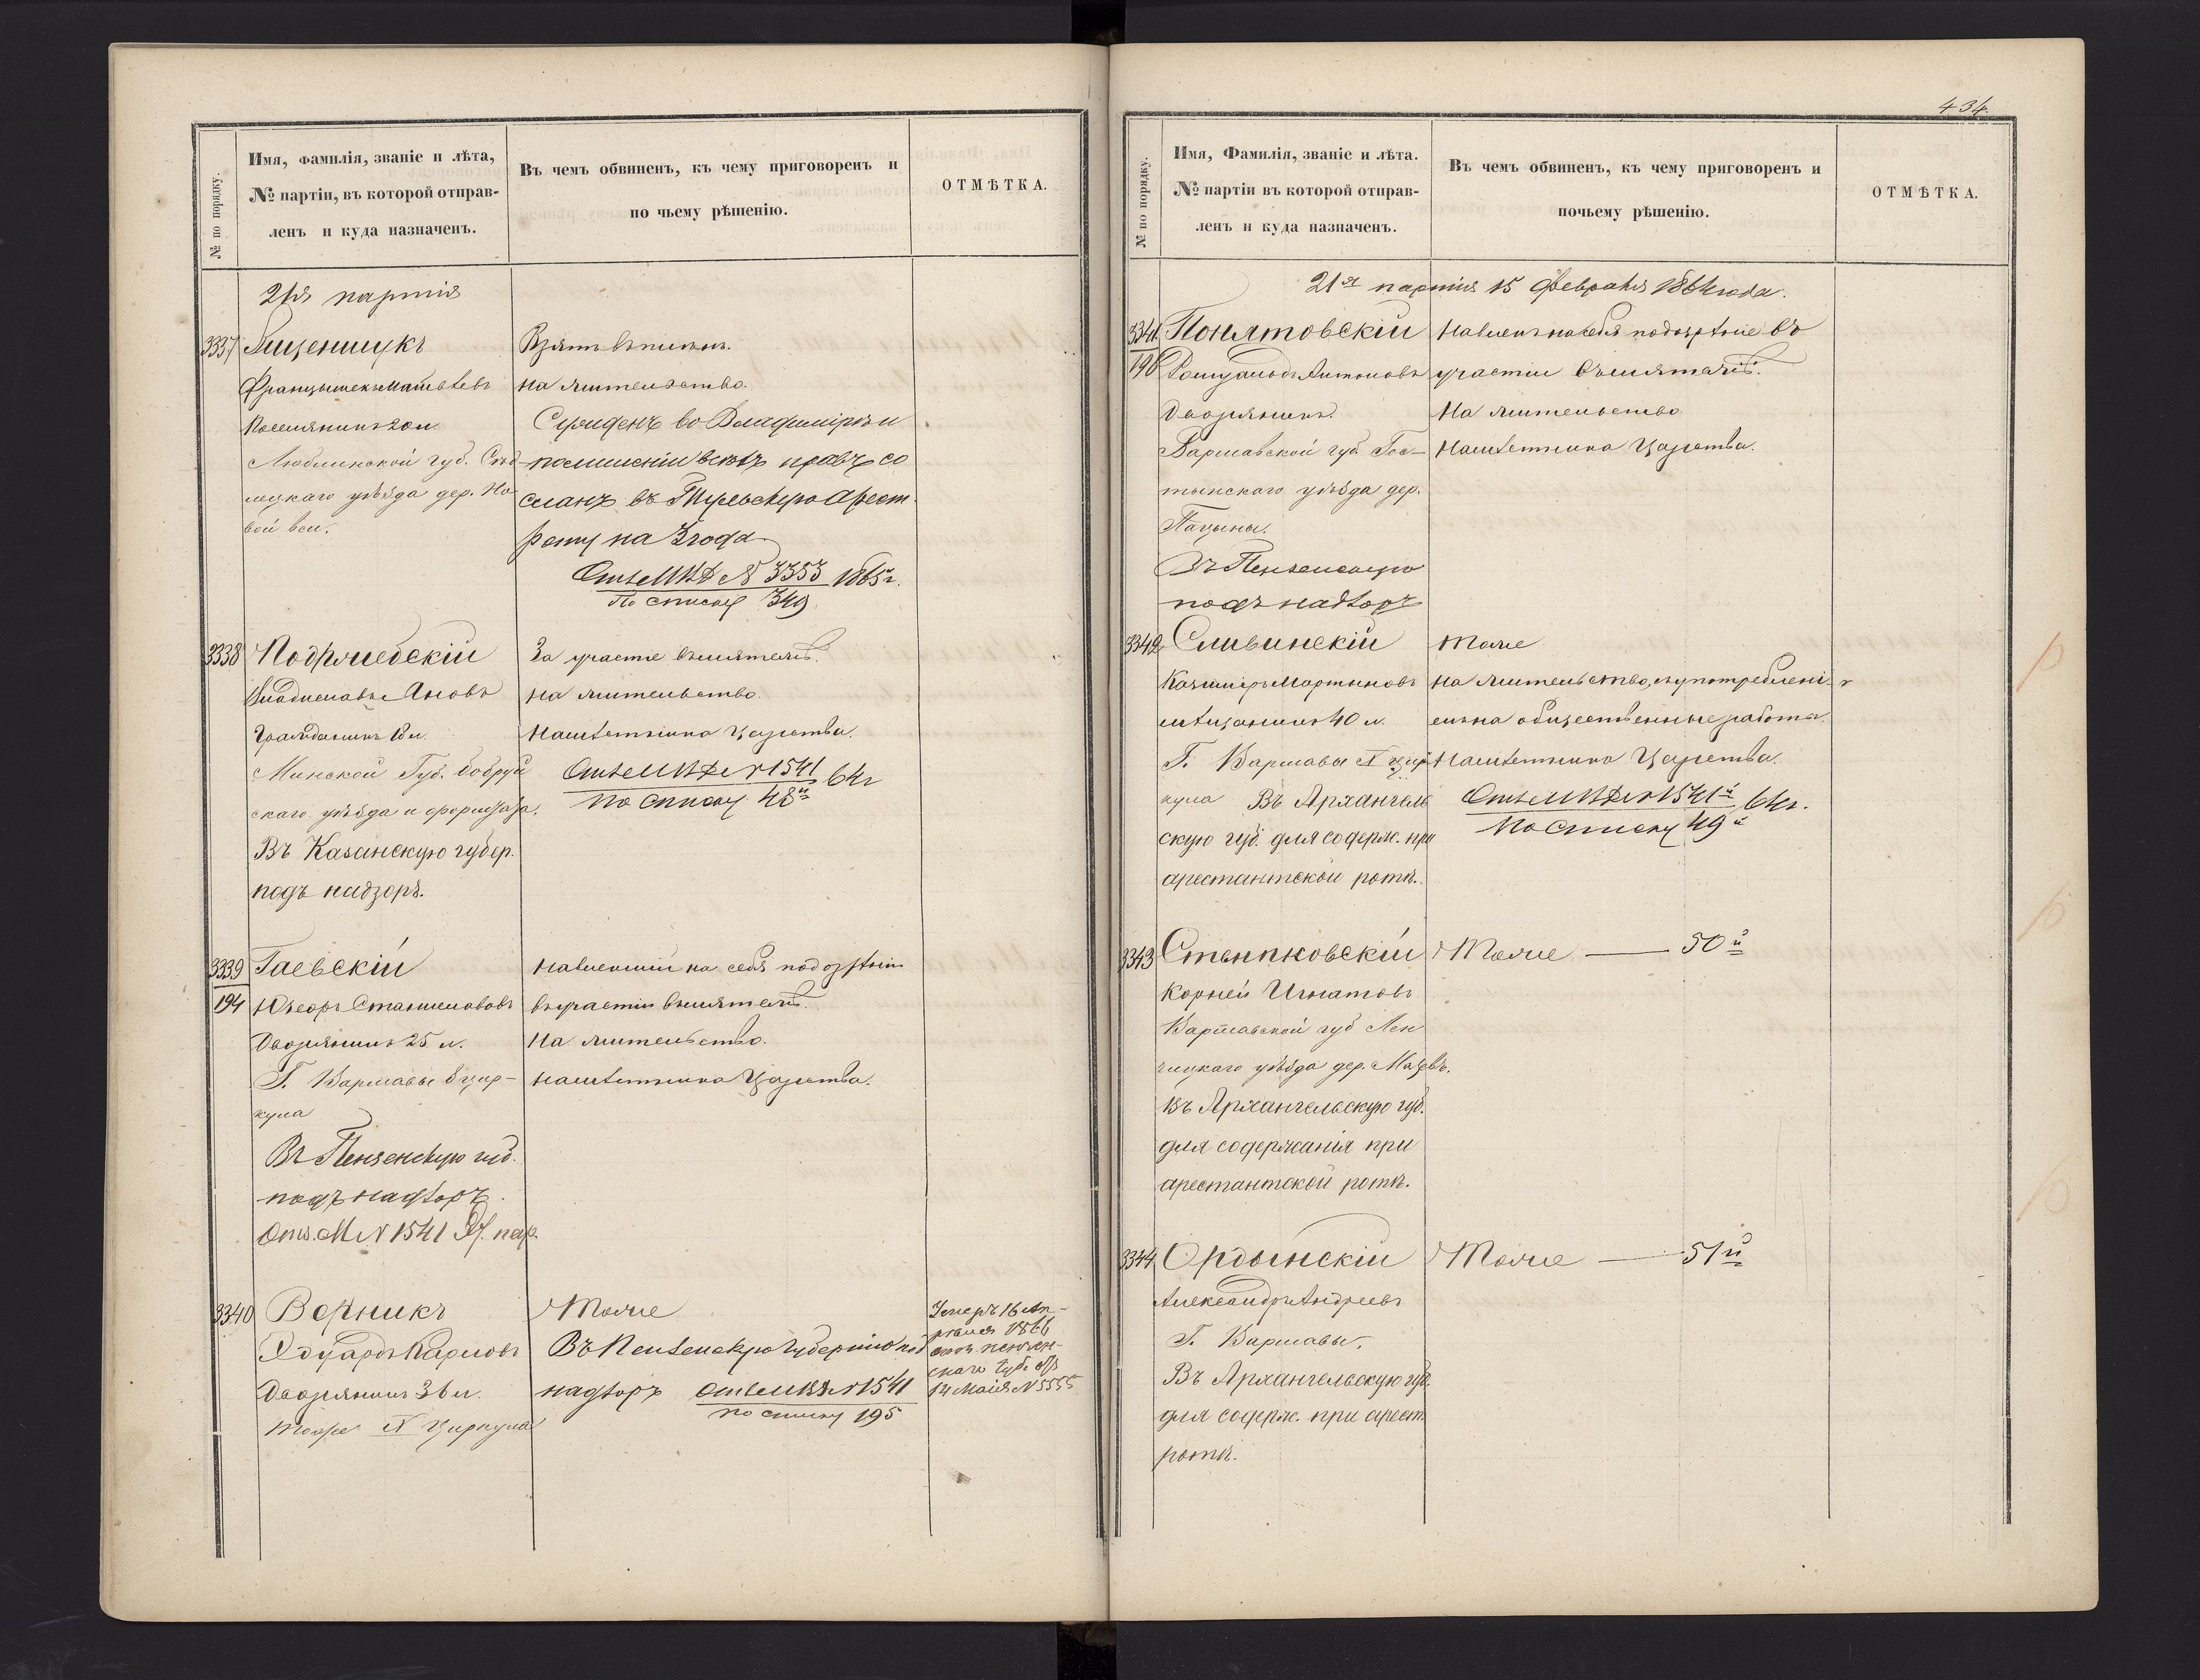 № по порядку.
Имя, фамилія, званіе и лѣта,
№ партіи, въ которой отправ-
ленъ и куда назначенъ.
Въ чемъ обвиненъ, къ чему приговоренъ и
по чьему рѣшенію.
ОТМѢТКА.
21я партія
3337
Францишекъ Матвѣевъ
Взятъ въ плѣнъ.
на жительство.
Люблинской губ.
лецкаго уѣзда дер. Но-
вой вси.
Сужденъ во Владимірѣ и
по лишеніи всѣхъ правъ со
сланъ въ Тульскую арест.
роту на 3 года
Отз. МВД № 3353 1865 г.
По списку 349
3338 Подржебскій
Владиславъ Яновъ
Гражданинъ 18 л.
Минской Губ. Бобруй
скаго уѣзда
Въ Казанскую губер.
подъ надзоръ.
За участіе въ мятежѣ.
на жительство.
Намѣстника Царства.
Отз. МВД № 1541 64 г
По списку 48й
3339 Гаевскій
194
Станиславовъ
Дворянинъ 25 л.
Г. Варшавы 8 цир-
кула
Въ Пензенскую губ.
подъ надзоръ.
Отз. М № 1541
навлекшій на себя подозрѣніе
въ участіи въ мятежѣ.
На жительство.
Намѣстника Царства.
3340 Верникъ
Эдуардъ Карловъ
Дворянинъ 36 л.
тоже Циркула
Тоже
Въ Пензенскую Губернію под
надзоръ Отз. МВД № 1541
по списку 195
Умеръ 16 Ап-
рѣля 1866
отз. Пензен-
скаго Губ.
14 Маія № 5555
434
№ по порядку.
Имя, Фамилія, званіе и лѣта.
№ партіи въ которой отправ-
ленъ и куда назначенъ.
Въ чемъ обвиненъ, къ чему приговоренъ и
почьему рѣшенію.
ОТМѢТКА.
21я партія 15 Февраля 1864 года.
3341 Понятовскій
196 Ромуальдъ Антоновъ
Дворянинъ.
Варшавской губ Гос-
тынскаго уѣзда дер.
Въ Пензенскую
подъ надзоръ
Навлекъ на себя подозрѣніе въ
участіи въ мятежѣ.
На жительство
Намѣстника Царства.
3342 Сливинскій
Казиміръ Мартыновъ
мѣщанинъ 40 л.
Г. Варшавы X цир
кула Въ Архангель
скую губ. для содерж. при
арестантской ротѣ.
Тоже
на жительство, съ употребленi-
емъ на общественные работы.
Намѣстника Царства.
Отз. МВД № 1541й 64 г.
По списку 49й
3343 Стемпковскій
Корней Игнатовъ
Варшавской губ Лен
чицкаго уѣзда дер.
Въ Архангельскую губ.
для содержанія при
арестантской ротѣ.
Тоже — 50й
3344 Ордынскій
Александръ Андреевъ
Г. Варшавы.
Въ Архангельскую губ.
для содерж. при арест.
ротѣ.
Тоже — 51й